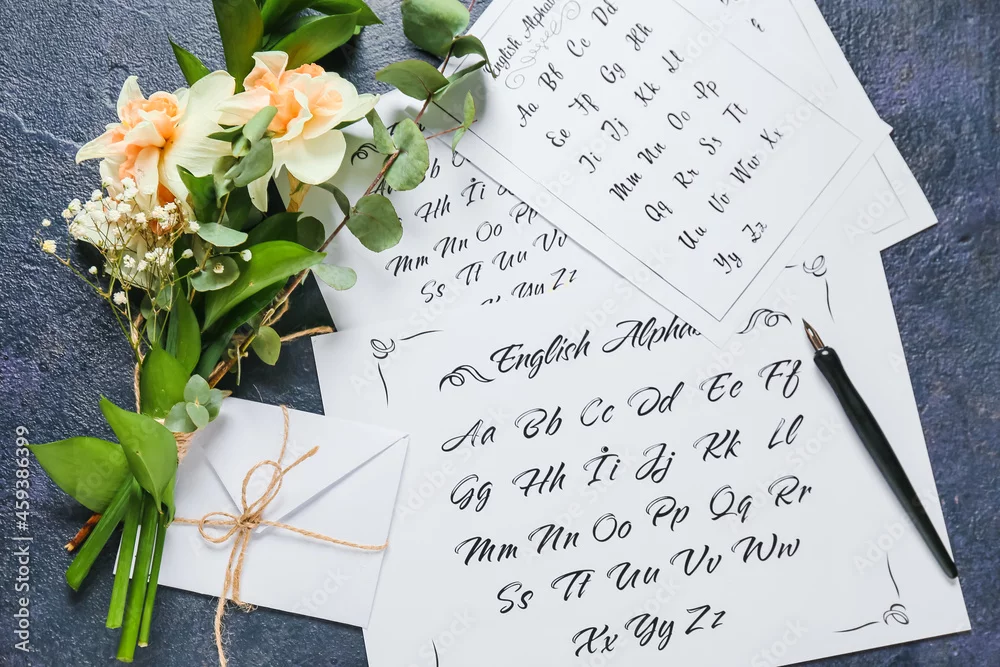 English Alphab
Aa Bb Cc Dd
Ee Ff Gg Hh
Ii Jj Kk Ll
Mm Nn Oo Pp
Qq Rr Ss Tt
Uu Vv Ww Xx
Yy Zz
Hh Ii
Mm Nn Oo Pp
Ss Tt Uu Vv
Yy Zz
English Alphab
Aa Bb Cc Dd Ee Ff
Gg Hh Ii Jj Kk Ll
Mm Nn Oo Pp Qq Rr
Ss Tt Uu Vv Ww
Xx Yy Zz
Adobe Stock | #459386399